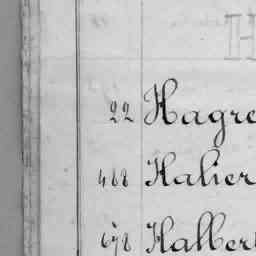 H
22 Hagre
468 Halier
678 Halber